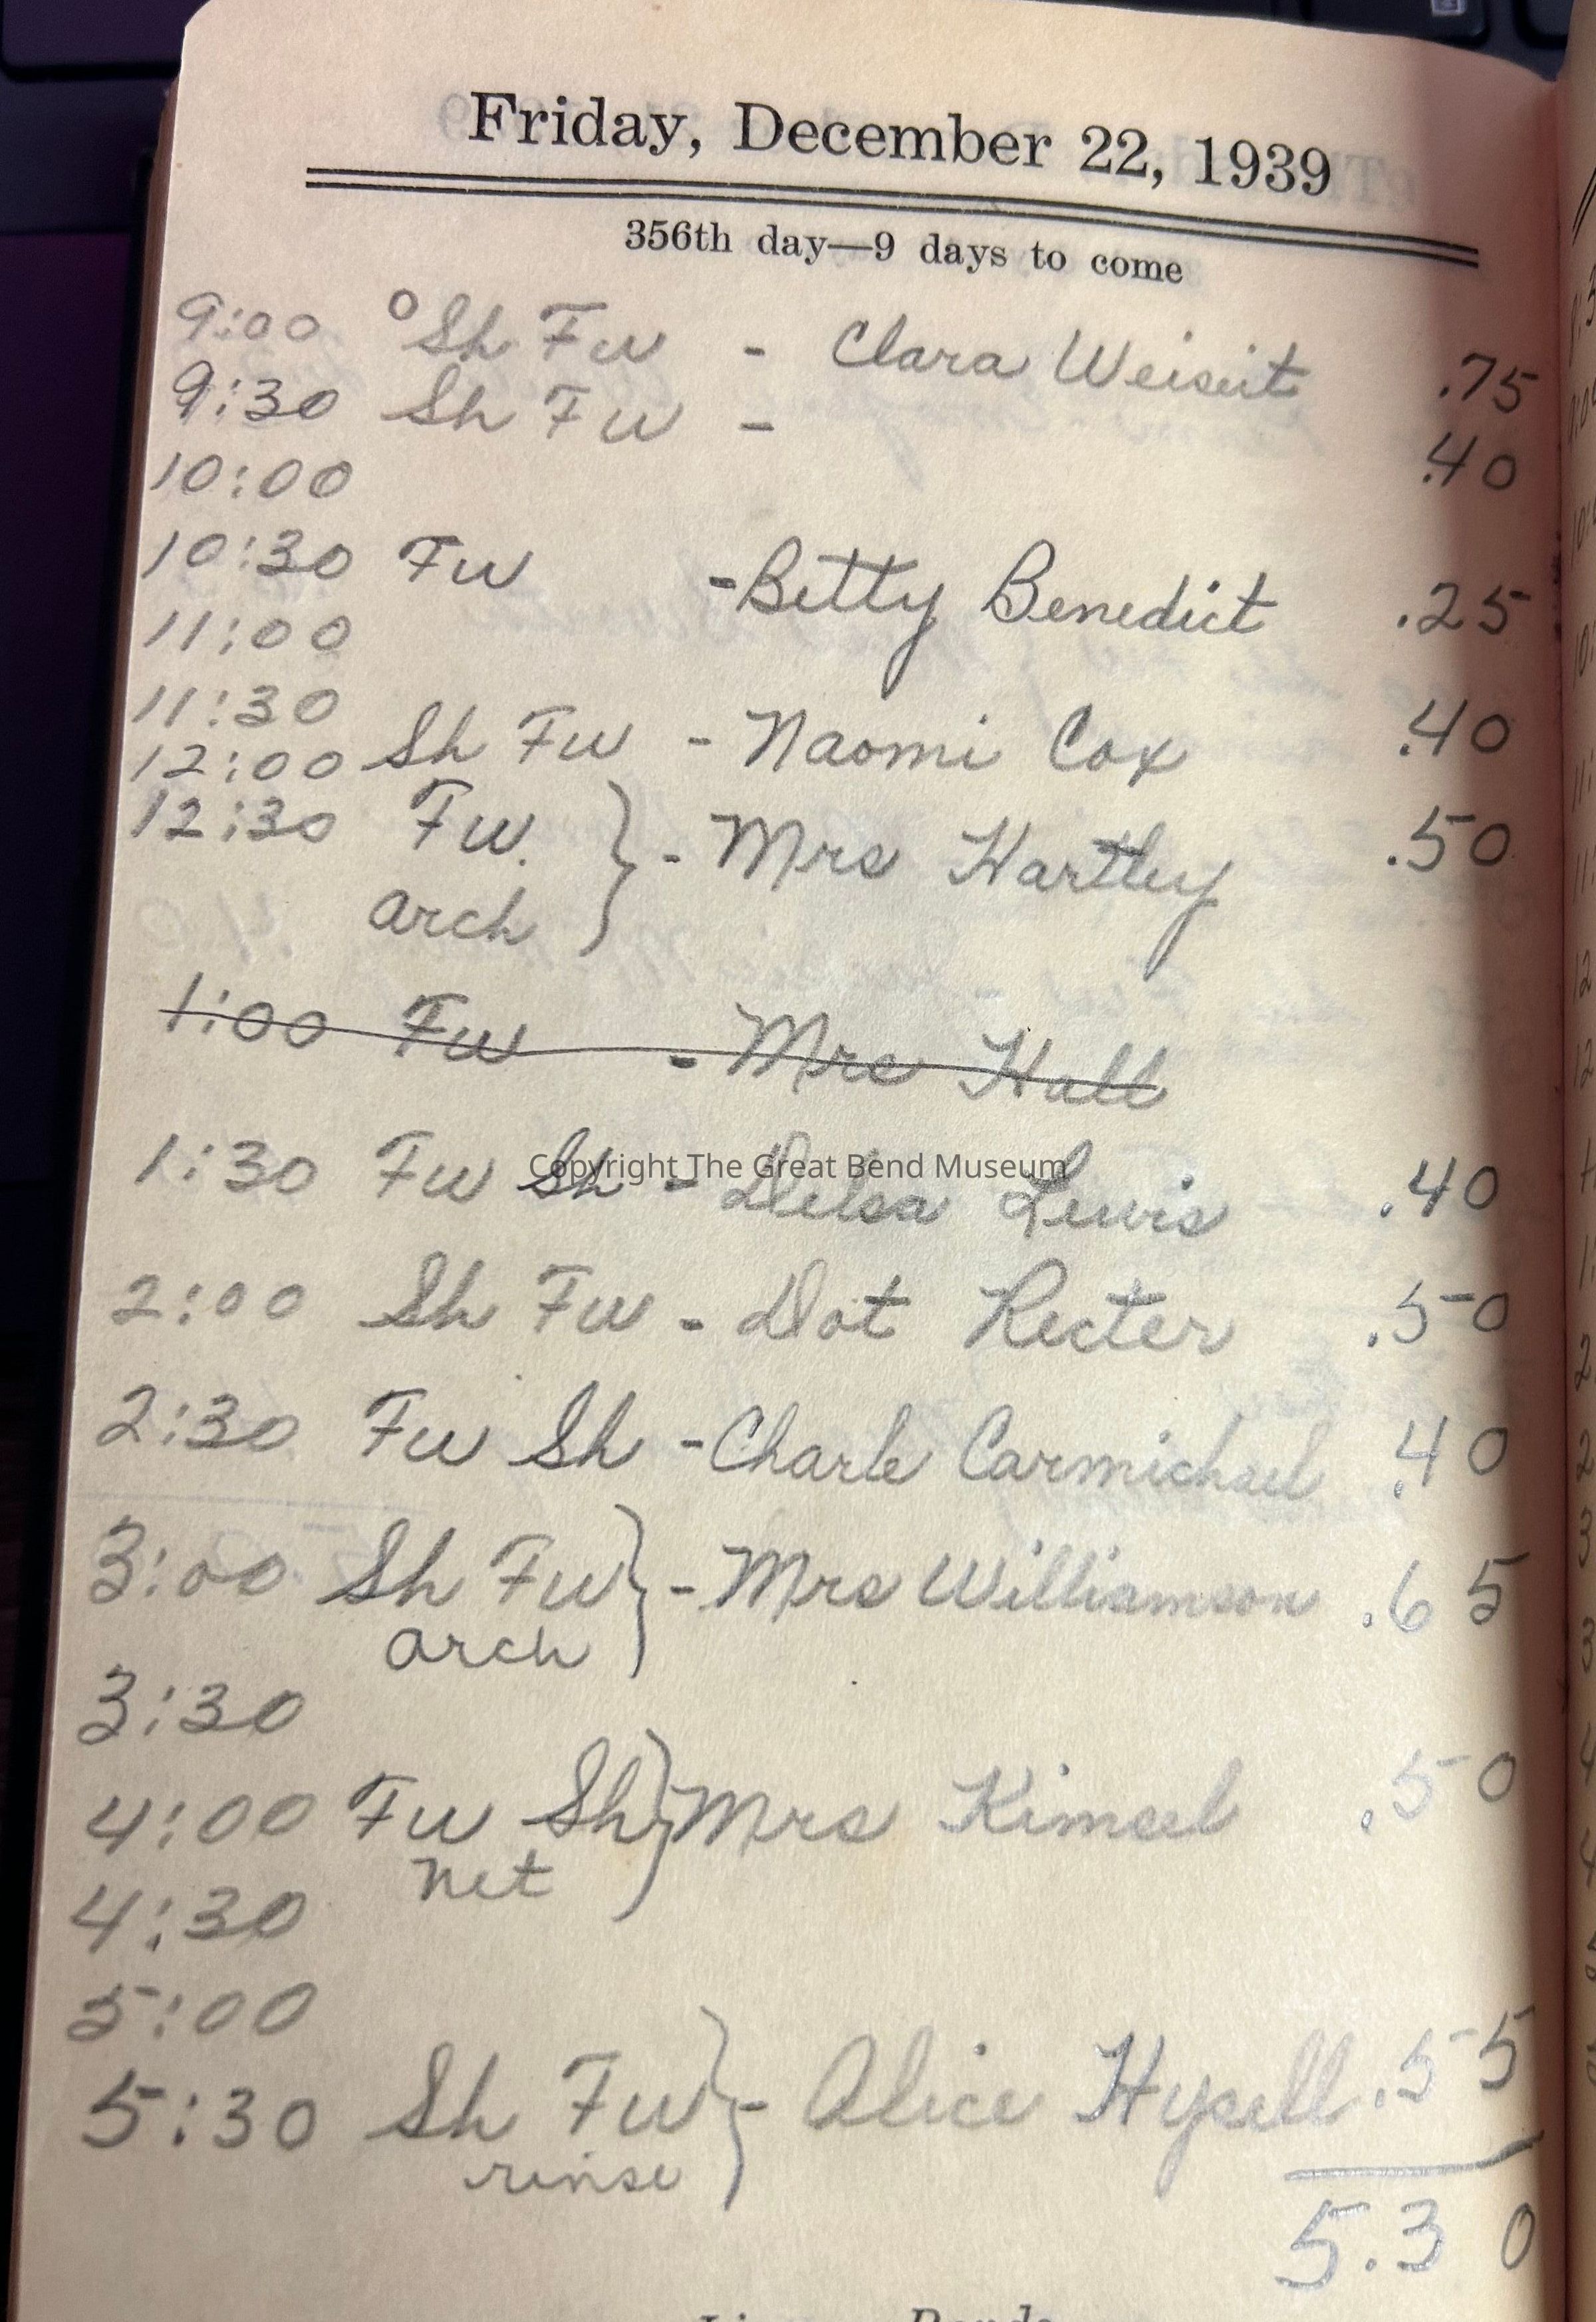 Friday, December 22, 1939
356th day—9 days to come
9:00 °Sh Fw - Clara Weisert .75
9:30 Sh Fw - .40
10:00
10:30 Fw - Betty Benedict .25
11:00
11:30
12:00 Sh Fw - Naomi Cox .40
12:30 Fw. } - Mrs Hartley .50
arch
1:00 Fw - Mrs Hall
1:30 Fw Sh - Delsa Lewis .40
Copyright The Great Bend Museum
2:00 Sh Fw - Dot Recter .50
2:30 Fw Sh - Charle Carmichael .40
3:00 Sh Fw } - Mrs Williamson .65
arch
3:30
4:00 Fw Sh } Mrs Kimsel .50
net
4:30
5:00
5:30 Sh Fw } - Alice Hysell .55
rinse
5.30